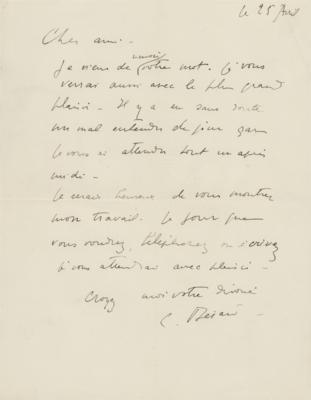 le 25 Avril
Cher ami -
Je viens de recevoir votre mot. Je vous
verrai aussi avec le plus grand
plaisir - Il y a eu sans doute
un mal entendu de jour car
je vous ai attendu tout un après
midi -
Je serais heureux de vous montrer
mon travail. Le jour que
vous voudrez, téléphonez ou écrivez
je vous attendrai avec plaisir -
Croyez moi votre dévoué
C. Bérard -